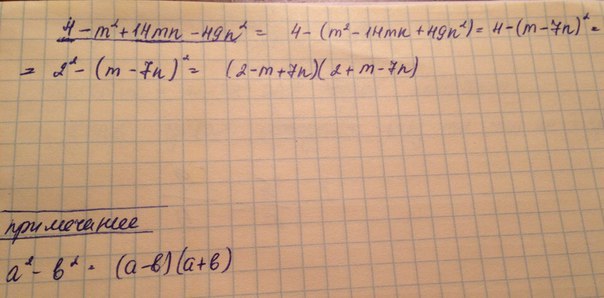 4 - m² + 14mn - 49n² = 4 - (m² - 14mn + 49n²) = 4 - (m - 7n)² =
= 2² - (m - 7n)² = (2 - m + 7n)(2 + m - 7n)
примечание
a² - b² = (a - b)(a + b)